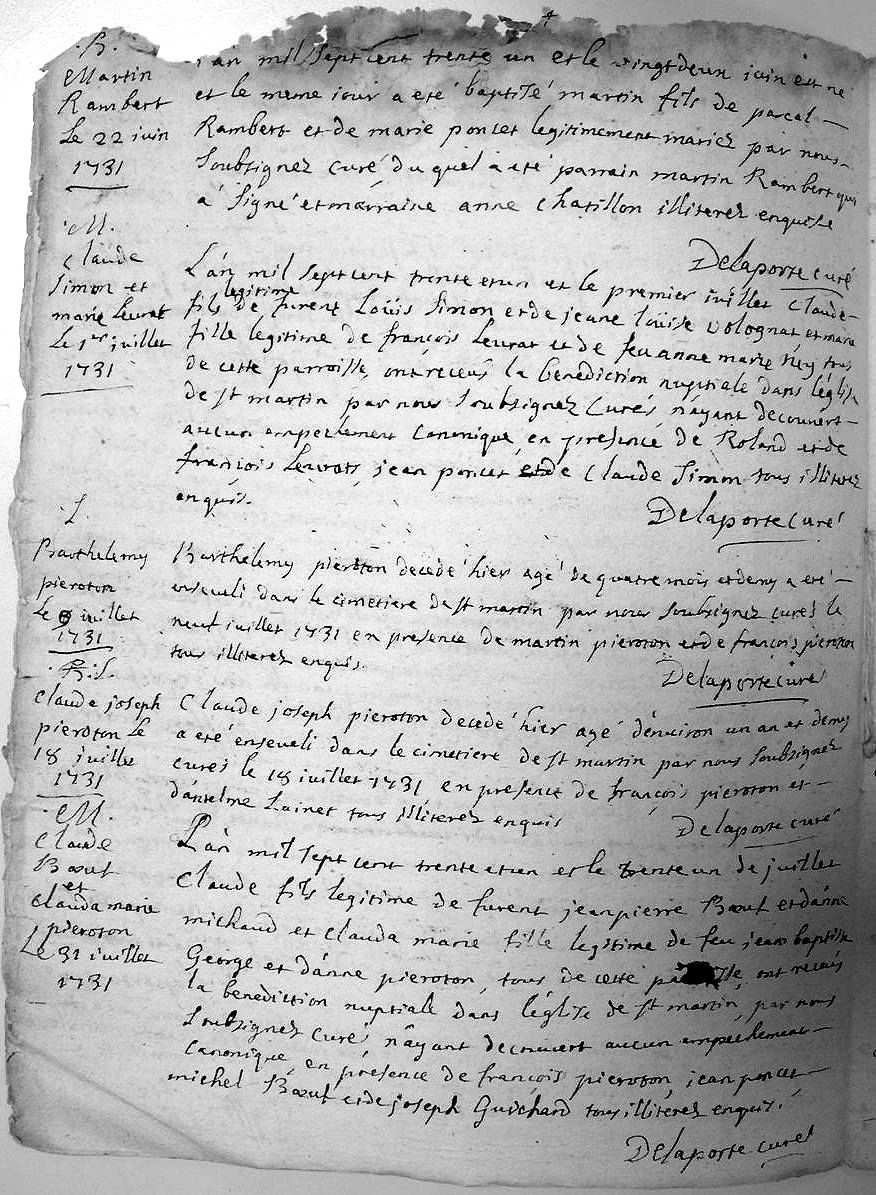 .B.
Martin
Rambert
Le 22 juin
1731
L'an mil sept cent trente un et le vingt deux juin est né
et le meme jour a eté baptisé martin fils de pascal —
Rambert et de marie poncet legitimement mariez par nous
Soubsignez curé duquel a eté parrain martin Rambert qui
a signé et marraine anne chatillon illiterez enquise
Delaporte curé
.M.
Claude
Simon et
marie Leurat
Le 1er juillet
1731
L'an mil sept cent trente et un et le premier juillet Claude
fils legitime de furent Loüis Simon et de jeane Loüise Volognat et marie
fille legitime de françois Leurat et de feu anne marie Ney tous
de cette parroisse, ont receus la benediction nuptiale dans léglise
de st martin par nous Soubsignez Curés n'ayant decouvert —
aucun empechement canonique, en presence de Roland et de
françois Leurats, jean poncet et de Claude Simon tous illiterez
enquis.
Delaporte curé
.S.
Barthelemy
pieroton
Le 9 juillet
1731
Barthelemy pieroton decedé hier agé de quatre mois et demy a eté —
enseveli dans le cimetiere de st martin par nous Soubsignez curés le
neuf juillet 1731 en presence de martin pieroton et de françois pieroton
tous illiterez enquis.
Delaporte curé
.S.
Claude joseph
pieroton Le
18 juillet
1731
Claude joseph pieroton decedé hier agé d'environ un an et demy
a eté enseveli dans le cimetiere de st martin par nous Soubsignez
curés le 18 juillet 1731 en presence de françois pieroton et —
d'antelme Lainet tous illiterez enquis
Delaporte curé
.M.
Claude
Bœuf
et
Clauda marie
pieroton
Le 31 juillet
1731
L'an mil sept cent trente et un et le trente un de juillet
Claude fils legitime de furent jean pierre Bœuf et d'anne
michaud et Clauda marie fille legitime de feu jean baptiste
George et d'anne pieroton, tous de cette parroisse, ont receus
la benediction nuptiale dans l'église de st martin, par nous
Soubsignez curés n'ayant decouvert aucun empechement —
canonique, en presence de françois pieroton, jean poncet —
michel Bœuf et de joseph Guichard tous illiterez enquis.
Delaporte curé